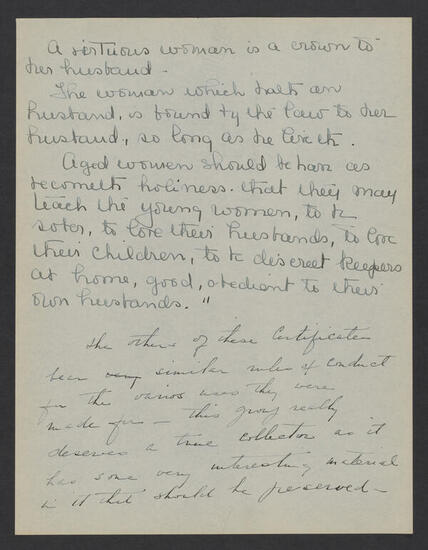 A virtuous woman is a crown to
her husband.
The woman which hath an
husband, is bound by the law to her
husband, so long as he liveth.
Aged women should behave as
becometh holiness. that they may
teach the young women, to be
sober, to love their husbands, to love
their children, to be discreet keepers
at home, good, obedient to their
own husbands."
The others of these Certificates
bear similar rules of conduct
for the varios uses they were
made for — this group really
deserves a true collector as it
has some very interesting material
in it that should be preserved —